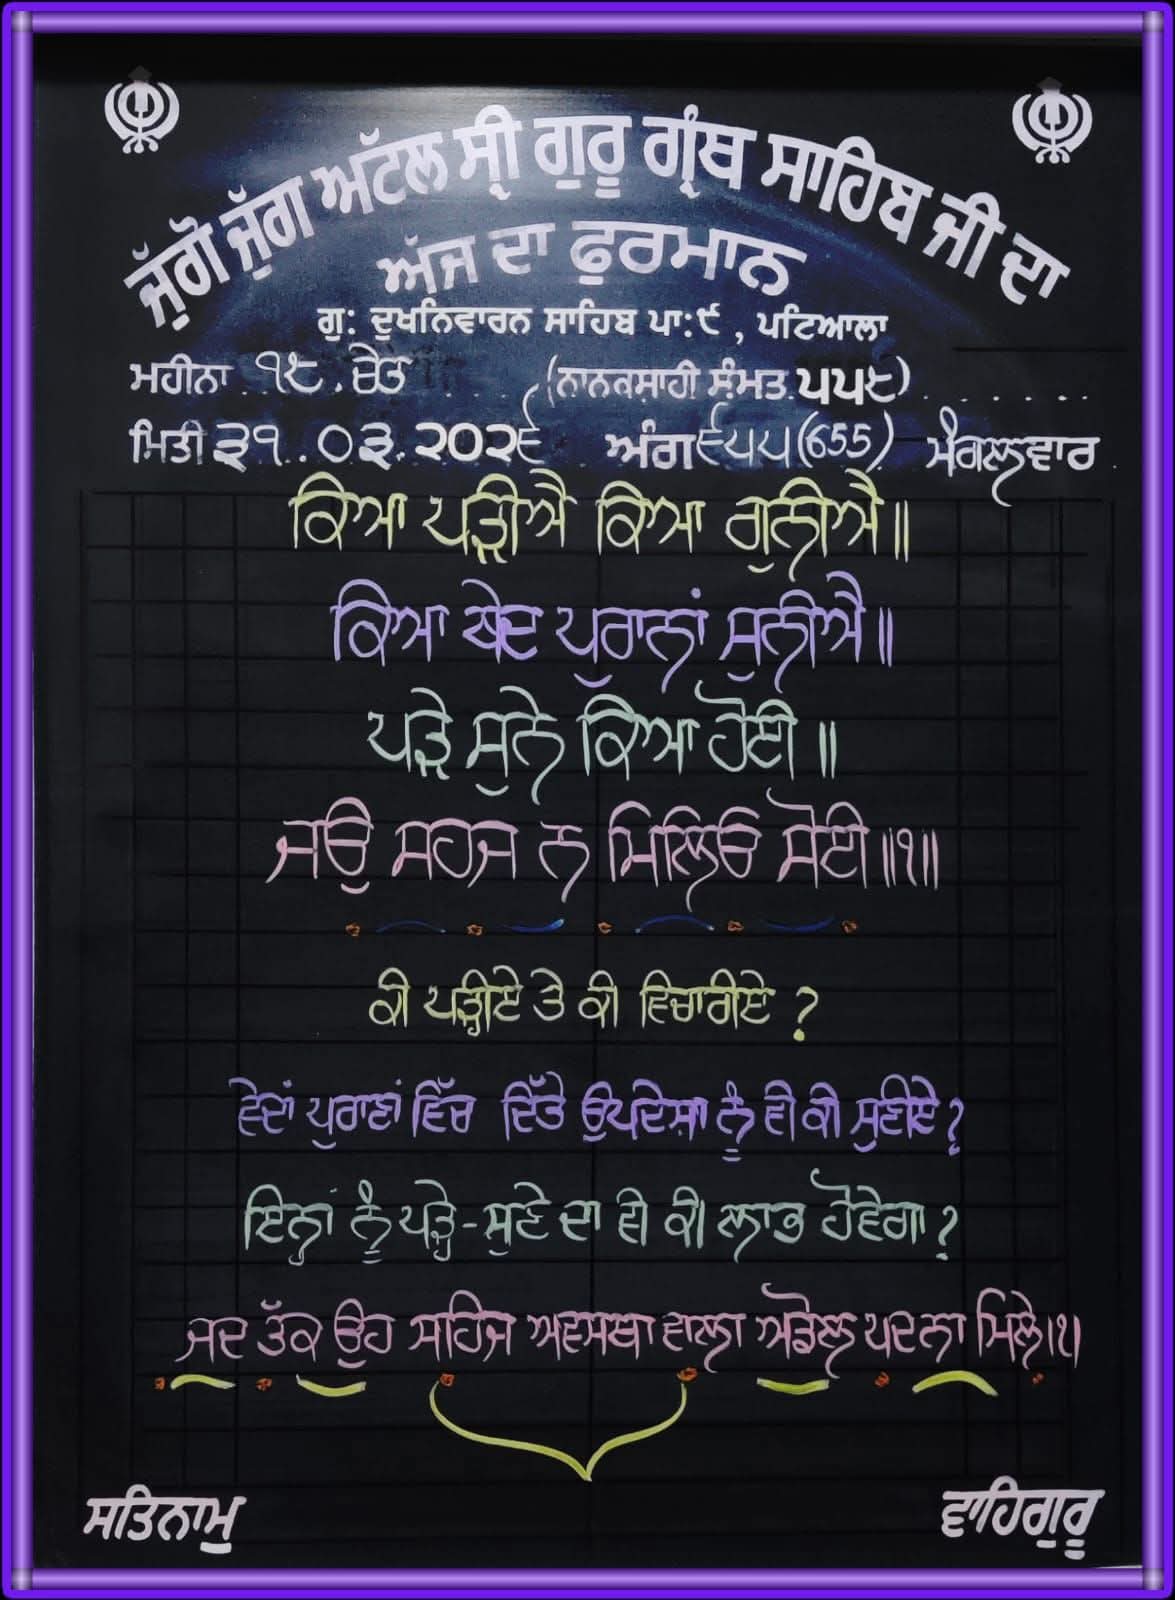 ਜੁੱਗੋ ਜੁੱਗ ਅਟੱਲ ਸ੍ਰੀ ਗੁਰੂ ਗ੍ਰੰਥ ਸਾਹਿਬ ਜੀ ਦਾ
ਅੱਜ ਦਾ ਫੁਰਮਾਨ
ਗੁ: ਦੁਖਨਿਵਾਰਨ ਸਾਹਿਬ ਪਾ:੯ , ਪਟਿਆਲਾ
ਮਹੀਨਾ ੧੮ ਚੇਤ (ਨਾਨਕਸ਼ਾਹੀ ਸੰਮਤ ੫੫੮)
ਮਿਤੀ ੩੧ . ੦੩ . ੨੦੨੬ ਅੰਗ ੬੫੫ (655) ਮੰਗਲਵਾਰ
ਕਿਆ ਪੜੀਐ ਕਿਆ ਗੁਨੀਐ॥
ਕਿਆ ਬੇਦ ਪੁਰਾਨਾਂ ਸੁਨੀਐ॥
ਪੜੇ ਸੁਨੇ ਕਿਆ ਹੋਈ ॥
ਜਉ ਸਹਜ ਨ ਮਿਲਿਓ ਸੋਈ॥੧॥
ਕੀ ਪੜ੍ਹੀਏ ਤੇ ਕੀ ਵਿਚਾਰੀਏ ?
ਵੇਦਾਂ ਪੁਰਾਣਾਂ ਵਿੱਚ ਦਿੱਤੇ ਉਪਦੇਸ਼ਾ ਨੂੰ ਵੀ ਕੀ ਸੁਣੀਏ ?
ਇਨ੍ਹਾਂ ਨੂੰ ਪੜ੍ਹੇ-ਸੁਣੇ ਦਾ ਵੀ ਕੀ ਲਾਭ ਹੋਵੇਗਾ ?
ਜਦ ਤੱਕ ਉਹ ਸਹਿਜ ਅਵਸਥਾ ਵਾਲਾ ਅਡੋਲ ਪਦ ਨਾ ਮਿਲੇ।੧।
ਸਤਿਨਾਮੁ ਵਾਹਿਗੁਰੂ